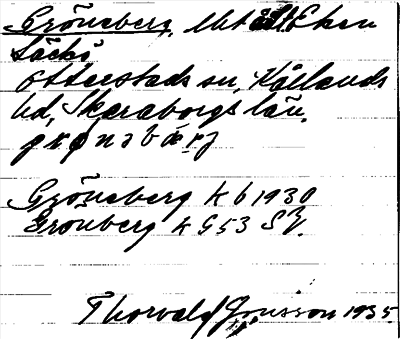 Gröneberg, lht Eken
Läckö
Otterstads sn, Kållands
hd, Skaraborgs län.
Gröneberg Kb 1930
Grönberg K G53 SV.
Thorvald Jonsson 1935